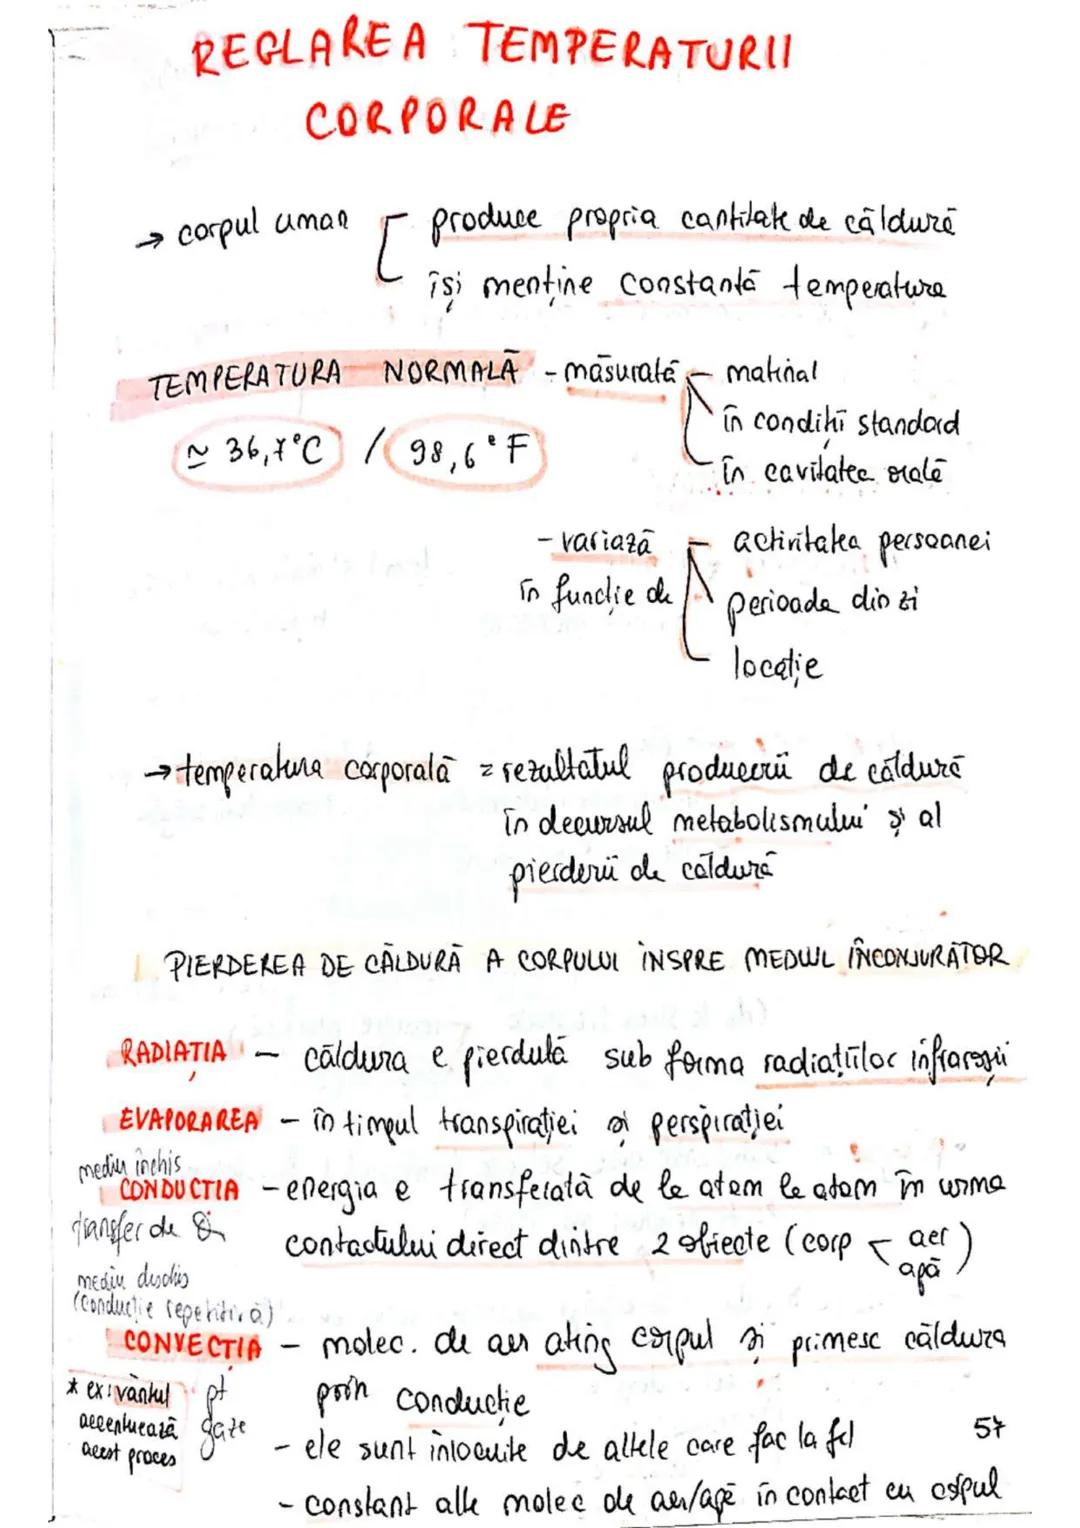 REGLAREA TEMPERATURII
CORPORALE
→ corpul uman produce propria cantitate de căldură
își menține constantă temperatura
TEMPERATURA NORMALĂ - măsurată matinal
în condiții standard
în cavitatea orală
≈ 36,7°C / 98,6°F
- variază în funcție de activitatea persoanei
perioada din zi
locație
→ temperatura corporală = rezultatul producerii de căldură
în decursul metabolismului și al
pierderii de căldură
PIERDEREA DE CĂLDURĂ A CORPULUI INSPRE MEDIUL ÎNCONJURĂTOR
RADIAȚIA - căldura e pierdută sub forma radiațiilor infraroșii
EVAPORAREA - în timpul transpirației și perspirației
mediu închis
CONDUCȚIA - energia e transferată de la atom la atom în urma
transfer de
contactului direct dintre 2 obiecte (corp aer
apă)
mediu deschis
(conducție repetitivă)
CONVECȚIA - molec. de aer ating corpul și primesc căldura
prin conducție
* ex: vântul
accentuează
acest proces
pt
gaze
- ele sunt înlocuite de altele care fac la fel
57
- constant alte molec de aer/apă în contact cu corpul